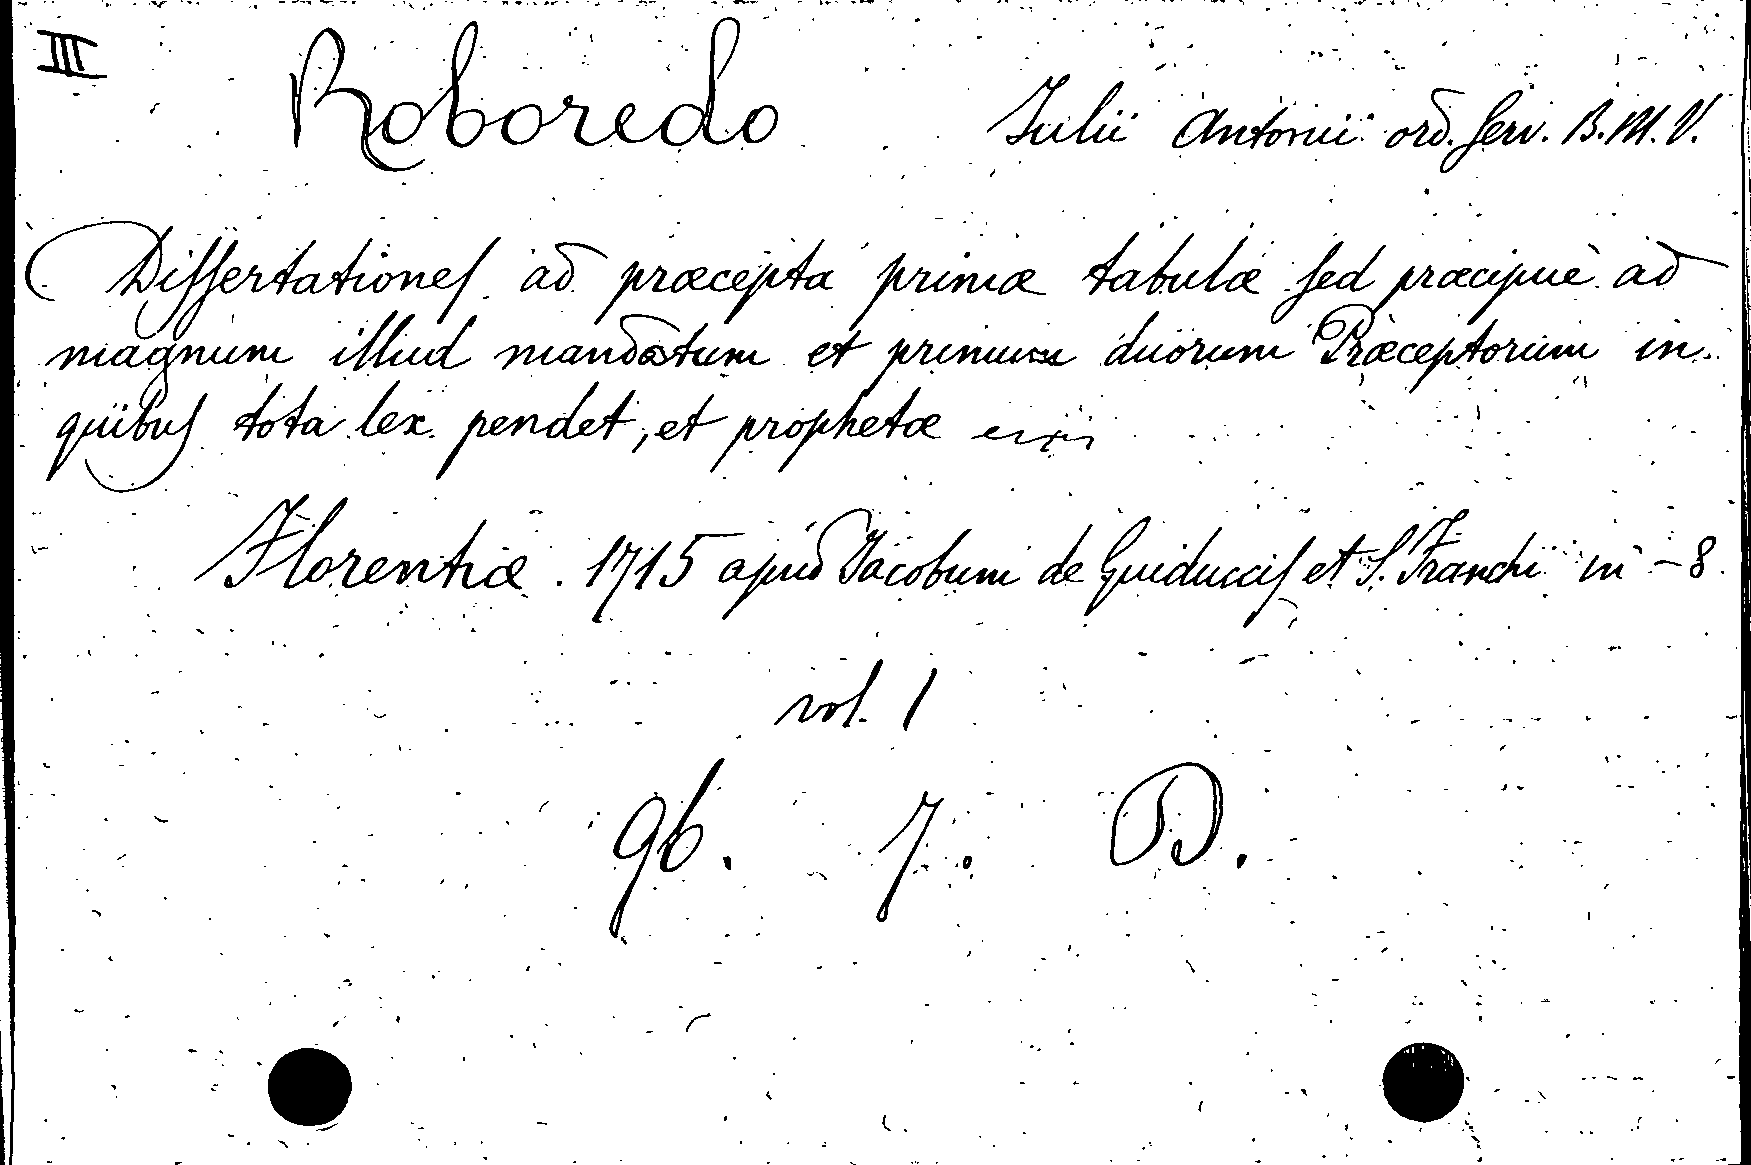 III Roboredo Julii Antonii ord. Serv. B. M. V.
Dissertationes ad præcepta primæ tabulæ sed præcipuè ad
magnum illud mandatum et primum duorum Præceptorum in
quibus tota lex pendet, et prophetæ
Florentiæ. 1715 apud Jacobum de Guiduccis et S. Franchi in - 8
vol. 1
96. 7. D.